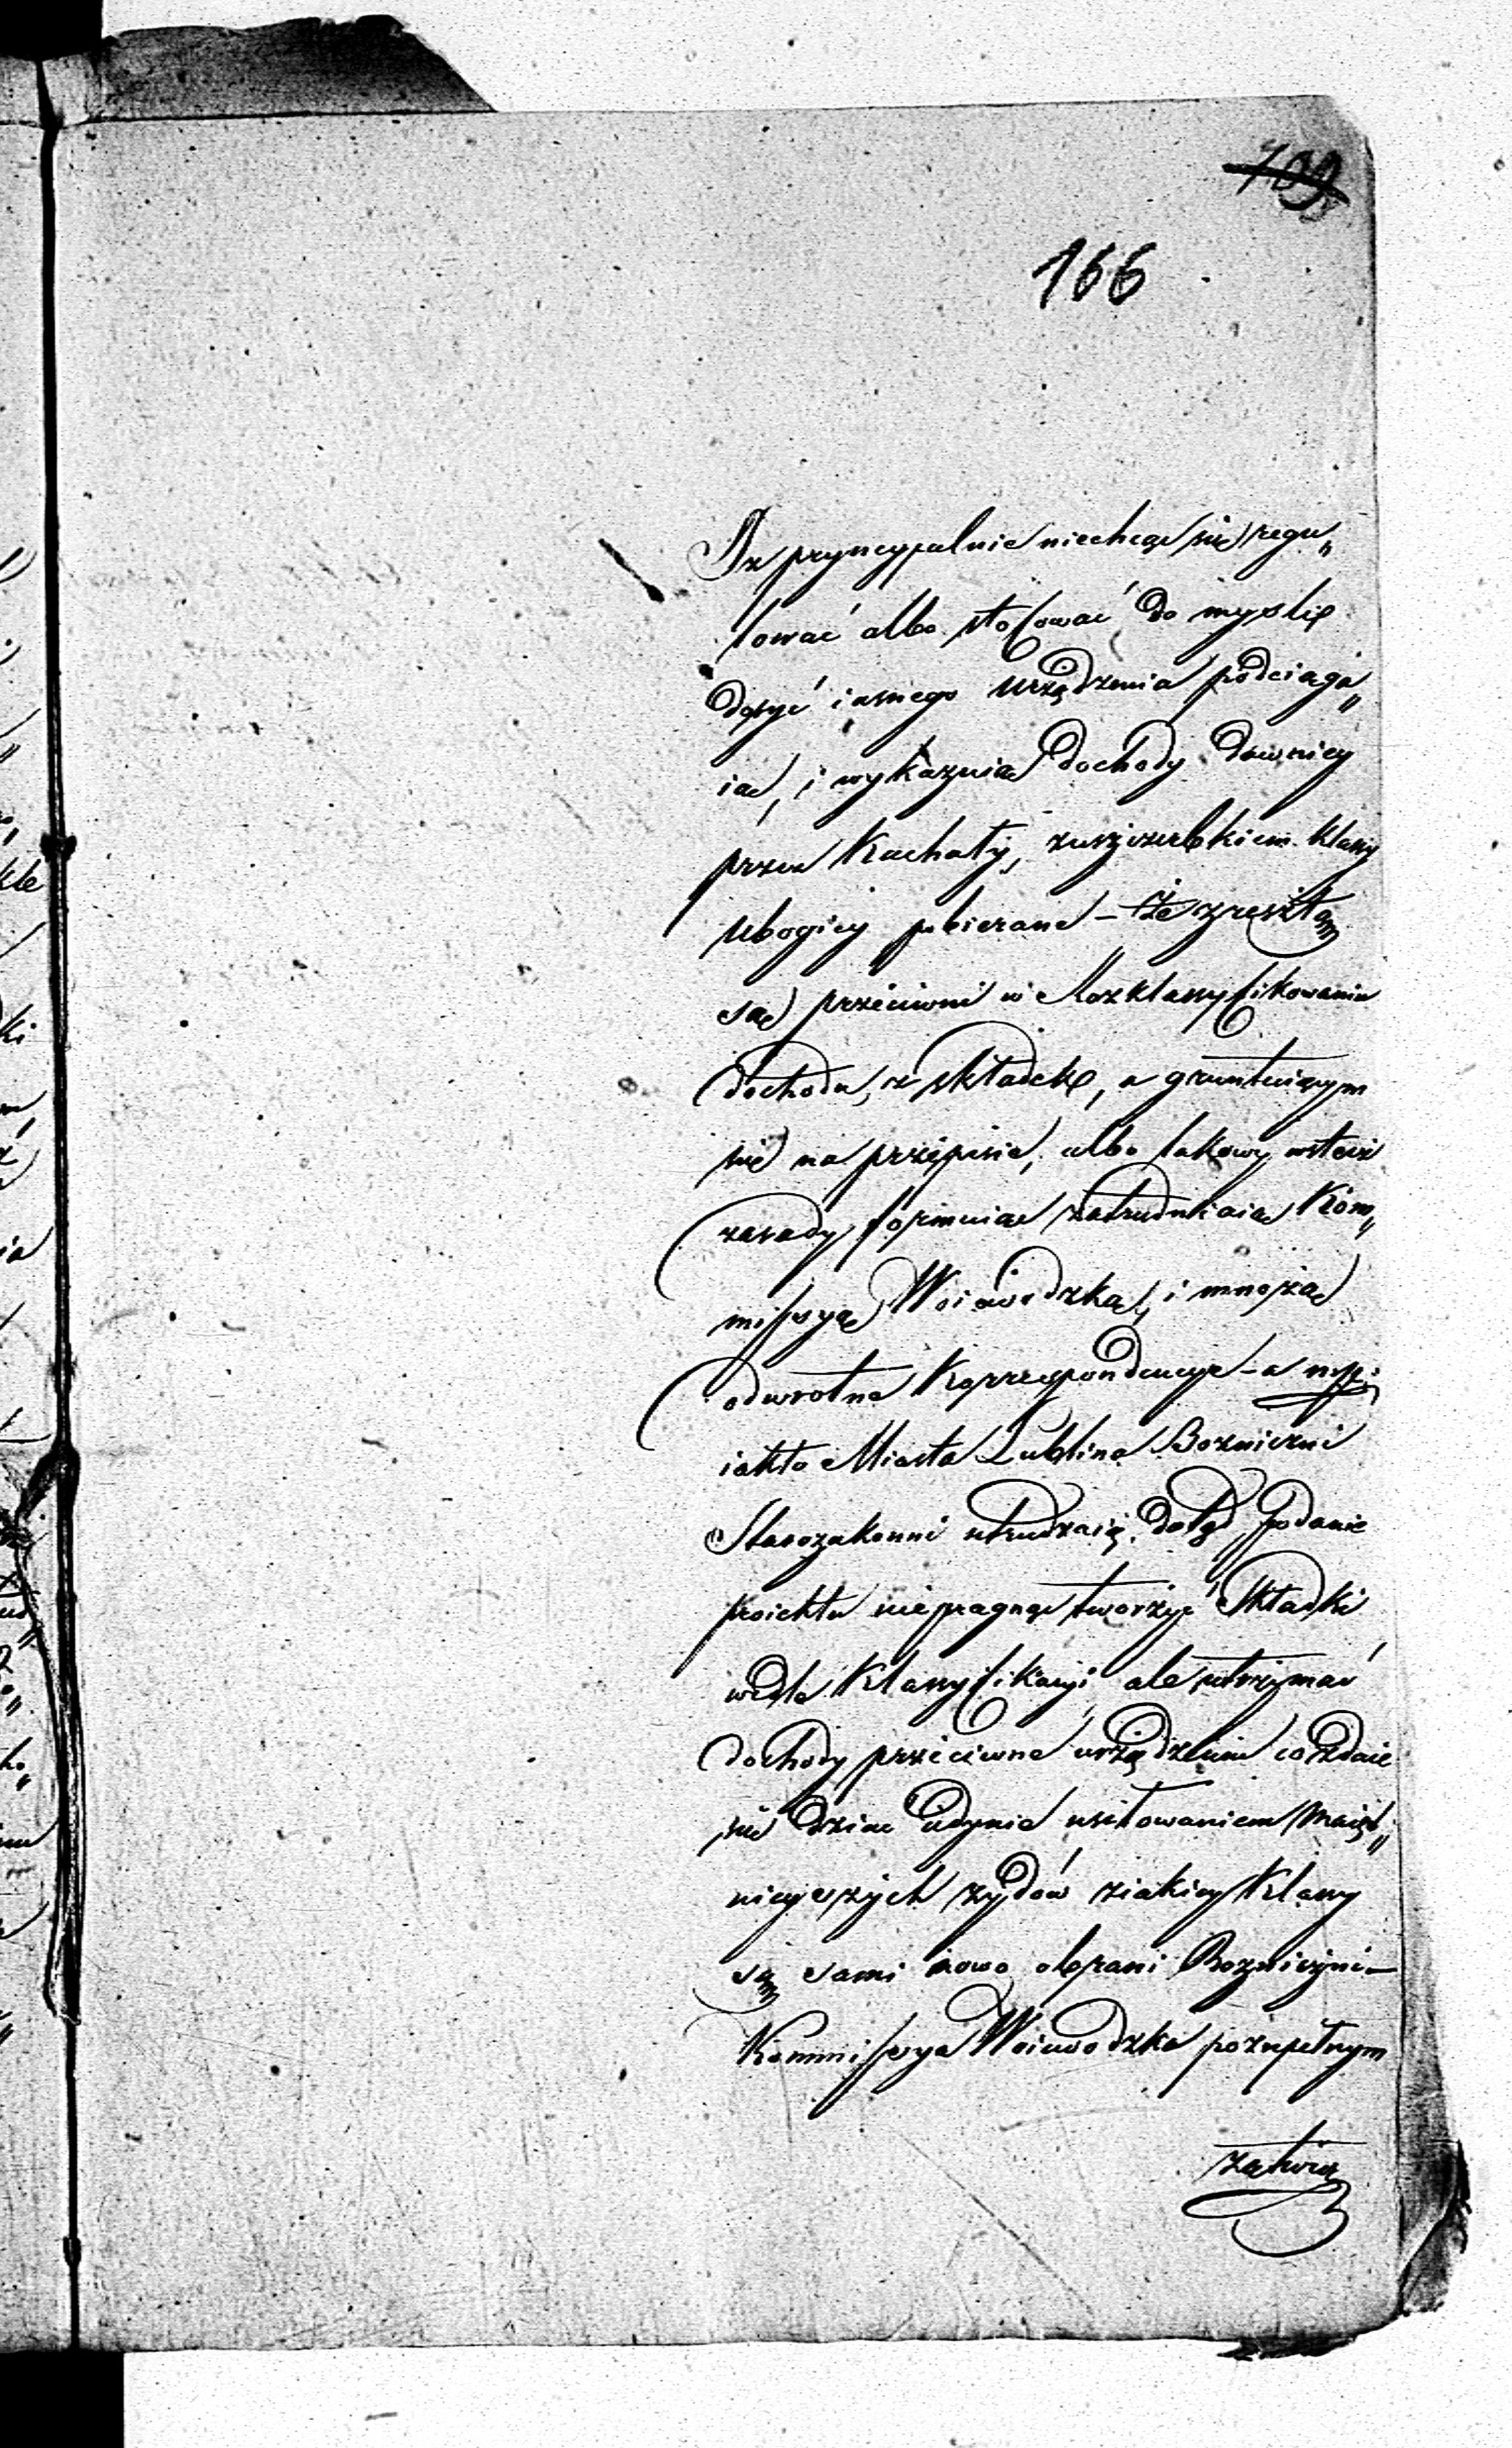 709
166
Iż pryncypalnie niechcąc się regu„
lować albo stosować do myśli
dosyć iasnego Urządzenia podciąga„
iąc, i wykaznią dochody dawniey
przez Kachały, zuszczerbkiem klassy
Ubogiey pobierane – że zresztą
są przeciwni w Rozklassyfikowaniu
dochodu, z składek, a gruntuiącym
się na przepisie, albo takowy wstecz
zasady formuiąc zatrudniaią Kom„
missyą Woiewodzką, i mnożą
odwrotne Korrespondencye – a
iakto Miasta Lublina Bozniczni
Starozakonni utrudzaią dotąd Podanie
proiektu niepragnąc tworzyć Składki
wedle Klassyfikacyi, ale utrzymać
dochody przeciwne urządzeniu co zdaie
się dziać iedynie usiłowaniem Maięt„
nieyszych żydów ziakiey Klassy
są sami nowo obrani Bozniczni –
Kommissya Woiewodzka pozupełnym